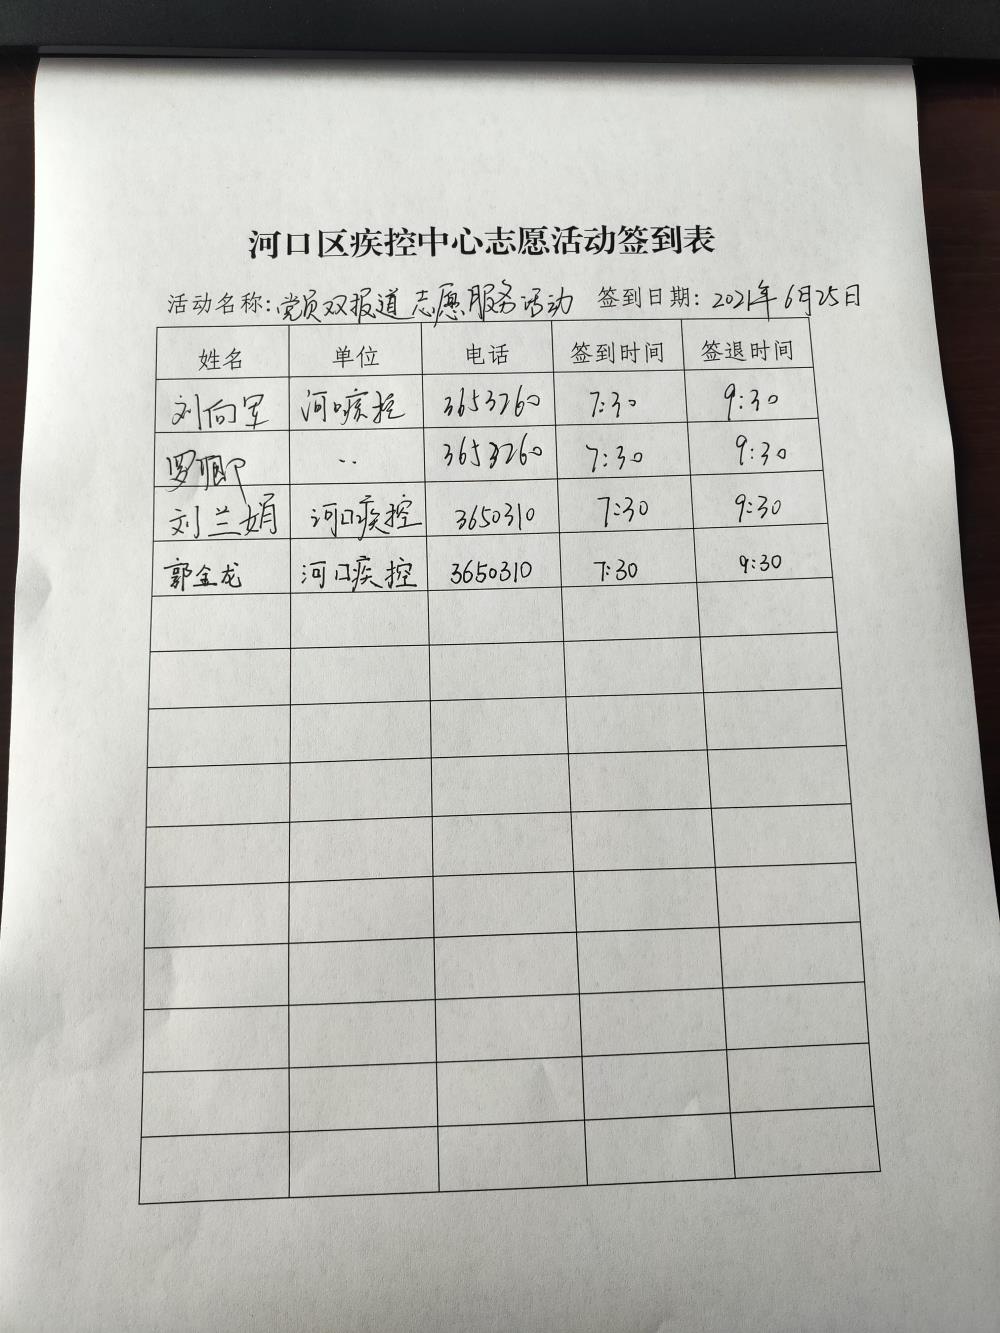 河口区疾控中心志愿活动签到表
活动名称: 党员双报道志愿服务活动 签到日期: 2021年6月25日
姓名 单位 电话 签到时间 签退时间
刘向军 河口疾控 3653260 7:30 9:30
罗卿 .. 3653260 7:30 9:30
刘兰娟 河口疾控 3650310 7:30 9:30
郭金龙 河口疾控 3650310 7:30 9:30